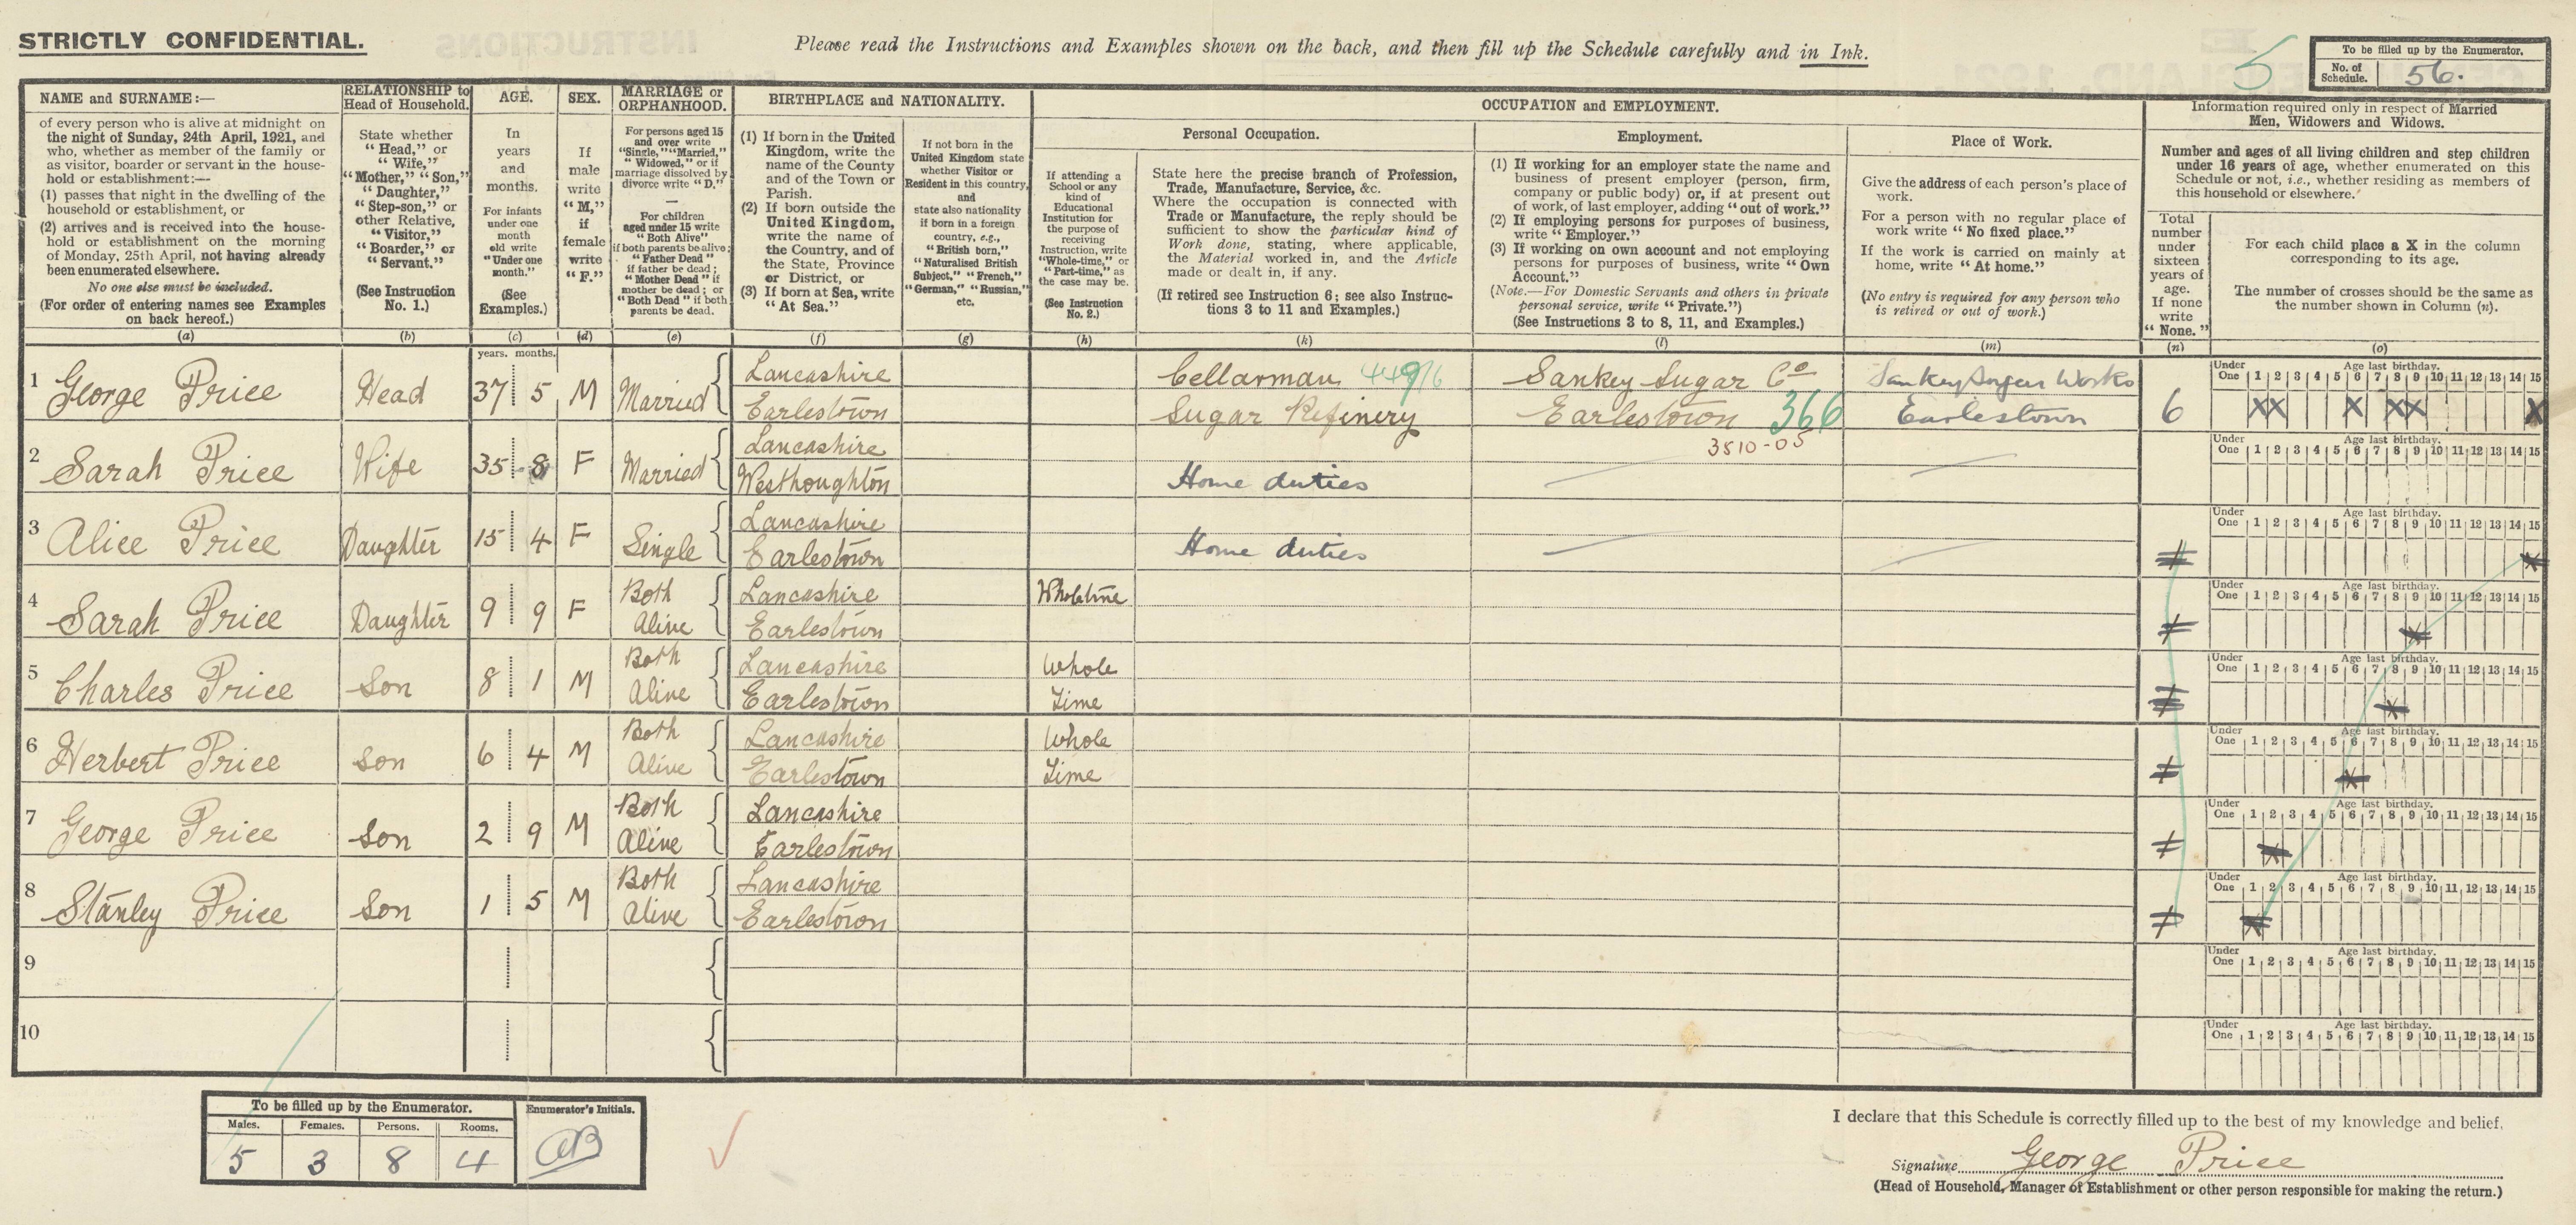 STRICTLY CONFIDENTIAL.
Please read the Instructions and Examples shown on the back, and then fill up the Schedule carefully and in Ink.
5
To be filled up by the Enumerator.
No. of Schedule. 56.
NAME and SURNAME:—
of every person who is alive at midnight on
the night of Sunday, 24th April, 1921, and
who, whether as member of the family or
as visitor, boarder or servant in the house-
hold or establishment:—
(1) passes that night in the dwelling of the
household or establishment, or
(2) arrives and is received into the house-
hold or establishment on the morning
of Monday, 25th April, not having already
been enumerated elsewhere.
No one else must be included.
(For order of entering names see Examples
on back hereof.)
(a)
RELATIONSHIP to
Head of Household.
State whether
"Head," or
"Wife,"
"Mother," "Son,"
"Daughter,"
"Step-son," or
other Relative,
"Visitor,"
"Boarder," or
"Servant."
(See Instruction
No. 1.)
(b)
AGE.
In
years
and
months.
For infants
under one
month
old write
"Under one
month."
(See
Examples.)
(c)
SEX.
If
male
write
"M,"
if
female
write
"F."
(d)
MARRIAGE or
ORPHANHOOD.
For persons aged 15
and over write
"Single," "Married,"
"Widowed," or if
marriage dissolved by
divorce write "D."
—
For children
aged under 15 write
"Both Alive"
if both parents be alive;
"Father Dead"
if father be dead;
"Mother Dead" if
mother be dead; or
"Both Dead" if both
parents be dead.
(e)
BIRTHPLACE and NATIONALITY.
(1) If born in the United
Kingdom, write the
name of the County
and of the Town or
Parish.
(2) If born outside the
United Kingdom,
write the name of
the Country, and of
the State, Province
or District, or
(3) If born at Sea, write
"At Sea."
(f)
If not born in the
United Kingdom state
whether Visitor or
Resident in this country,
and
state also nationality
if born in a foreign
country, e.g.,
"British born,"
"Naturalised British
Subject," "French,"
"German," "Russian,"
etc.
(g)
OCCUPATION and EMPLOYMENT.
If attending a
School or any
kind of
Educational
Institution for
the purpose of
receiving
Instruction, write
"Whole-time," or
"Part-time," as
the case may be.
(See Instruction
No. 2.)
(h)
Personal Occupation.
State here the precise branch of Profession,
Trade, Manufacture, Service, &c.
Where the occupation is connected with
Trade or Manufacture, the reply should be
sufficient to show the particular kind of
Work done, stating, where applicable,
the Material worked in, and the Article
made or dealt in, if any.
(If retired see Instruction 6; see also Instruc-
tions 3 to 11 and Examples.)
(k)
Employment.
(1) If working for an employer state the name and
business of present employer (person, firm,
company or public body) or, if at present out
of work, of last employer, adding "out of work."
(2) If employing persons for purposes of business,
write "Employer."
(3) If working on own account and not employing
persons for purposes of business, write "Own
Account."
(Note.—For Domestic Servants and others in private
personal service, write "Private.")
(See Instructions 3 to 8, 11, and Examples.)
(l)
Place of Work.
Give the address of each person's place of
work.
For a person with no regular place of
work write "No fixed place."
If the work is carried on mainly at
home, write "At home."
(No entry is required for any person who
is retired or out of work.)
(m)
Information required only in respect of Married
Men, Widowers and Widows.
Number and ages of all living children and step children
under 16 years of age, whether enumerated on this
Schedule or not, i.e., whether residing as members of
this household or elsewhere.
Total
number
under
sixteen
years of
age.
If none
write
"None."
(n)
For each child place a X in the column
corresponding to its age.
The number of crosses should be the same as
the number shown in Column (n).
(o)
years. months.
1 George Price Head 37 5 M Married Lancashire Earlestown Cellarman 449/6 Sugar Refinery Sankey Sugar Co Earlestown 366 Sankey Sugar Works Earlestown 6
Under One 1 2 3 4 5 6 7 8 9 10 11 12 13 14 15 Age last birthday.
X X X X X X
3510-05
2 Sarah Price Wife 35 8 F Married Lancashire Westhoughton Home duties
Under One 1 2 3 4 5 6 7 8 9 10 11 12 13 14 15 Age last birthday.
3 Alice Price Daughter 15 4 F Single Lancashire Earlestown Home duties
Under One 1 2 3 4 5 6 7 8 9 10 11 12 13 14 15 Age last birthday.
4 Sarah Price Daughter 9 9 F Both Alive Lancashire Earlestown Wholetime
Under One 1 2 3 4 5 6 7 8 9 10 11 12 13 14 15 Age last birthday.
5 Charles Price Son 8 1 M Both Alive Lancashire Earlestown Whole Time
Under One 1 2 3 4 5 6 7 8 9 10 11 12 13 14 15 Age last birthday.
6 Herbert Price Son 6 4 M Both Alive Lancashire Earlestown Whole Time
Under One 1 2 3 4 5 6 7 8 9 10 11 12 13 14 15 Age last birthday.
7 George Price Son 2 9 M Both Alive Lancashire Earlestown
Under One 1 2 3 4 5 6 7 8 9 10 11 12 13 14 15 Age last birthday.
8 Stanley Price Son 1 5 M Both Alive Lancashire Earlestown
Under One 1 2 3 4 5 6 7 8 9 10 11 12 13 14 15 Age last birthday.
9
Under One 1 2 3 4 5 6 7 8 9 10 11 12 13 14 15 Age last birthday.
10
Under One 1 2 3 4 5 6 7 8 9 10 11 12 13 14 15 Age last birthday.
To be filled up by the Enumerator.
Males. Females. Persons. Rooms.
5 3 8 4
Enumerator's Initials.
I declare that this Schedule is correctly filled up to the best of my knowledge and belief.
Signature George Price
(Head of Household, Manager of Establishment or other person responsible for making the return.)